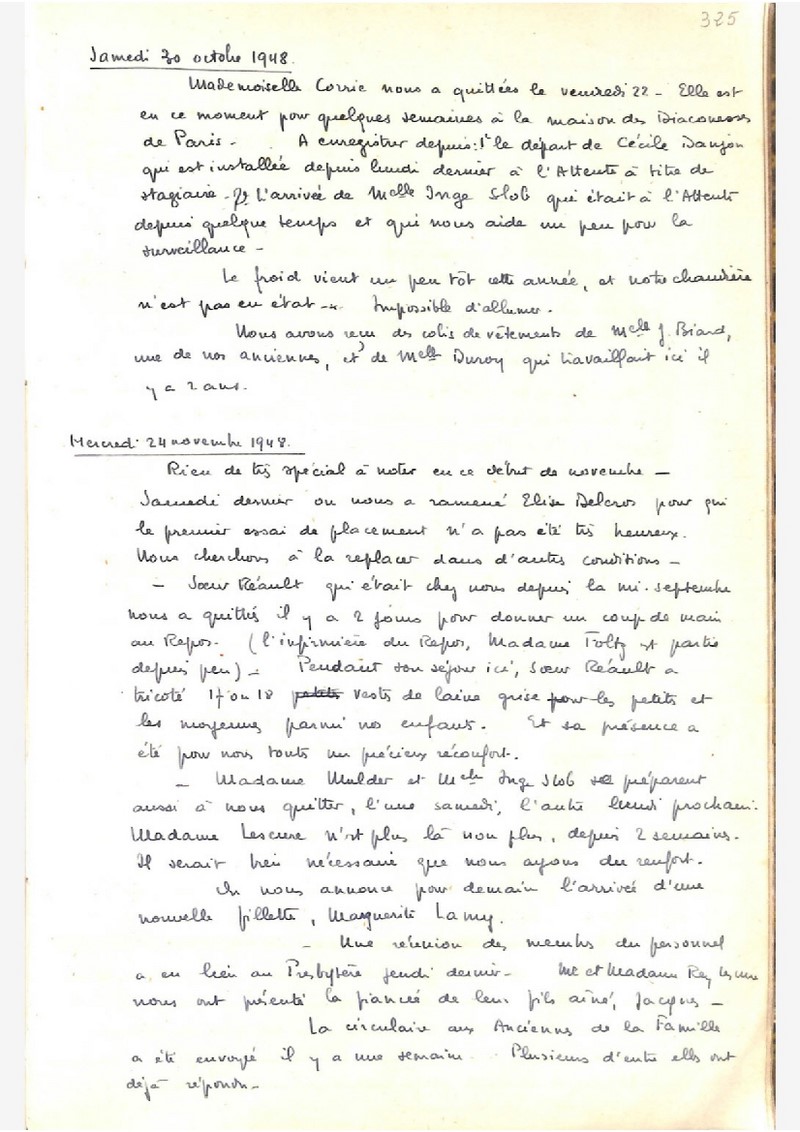 325
Samedi 30 octobre 1948.
Mademoiselle Corric nous a quittées le vendredi 22 - Elle est
en ce moment pour quelques semaines à la maison des Diaconesses
de Paris - A enregistrer depuis : 1° le départ de Cécile Danjon
qui est installée depuis lundi dernier à l'Attente à titre de
stagiaire - 2° L'arrivée de Melle Inge Slob qui était à l'Attente
depuis quelque temps et qui nous aide un peu pour la
surveillance -
Le froid vient un peu tôt cette année, et notre chaudière
n'est pas en état - Impossible d'allumer.
Nous avons reçu des colis de vêtements de Melle J. Biard,
une de nos anciennes, et de Melle Duroy qui travaillait ici il
y a 2 ans.
Mercredi 24 novembre 1948.
Rien de très spécial à noter en ce début de novembre -
Samedi dernier on nous a ramené Elise Delcros pour qui
le premier essai de placement n'a pas été très heureux.
Nous cherchons à la replacer dans d'autres conditions -
- Sœur Réault qui était chez nous depuis la mi-septembre
nous a quittés il y a 2 jours pour donner un coup de main
au Repos. (l'infirmière du Repos, Madame Toltz est partie
depuis peu) - Pendant son séjour ici, Sœur Réault a
tricoté 17 ou 18 petits vestes de laine grise pour les petits et
les moyennes parmi nos enfants. Et sa présence a
été pour nous toutes un précieux réconfort.
- Madame Mulder et Melle Inge Slob se préparent
aussi à nous quitter, l'une samedi, l'autre lundi prochain.
Madame Lescure n'est plus là non plus, depuis 2 semaines.
Il serait bien nécessaire que nous ayons du renfort.
On nous annonce pour demain l'arrivée d'une
nouvelle fillette, Marguerite Lamy.
- Une réunion des membres du personnel
a eu lieu au Presbytère jeudi dernier - Mr et Madame Rey Lescure
nous ont présenté la fiancée de leur fils aîné, Jacques -
La circulaire aux Anciennes de la Famille
a été envoyée il y a une semaine. Plusieurs d'entre elles ont
déjà répondu -